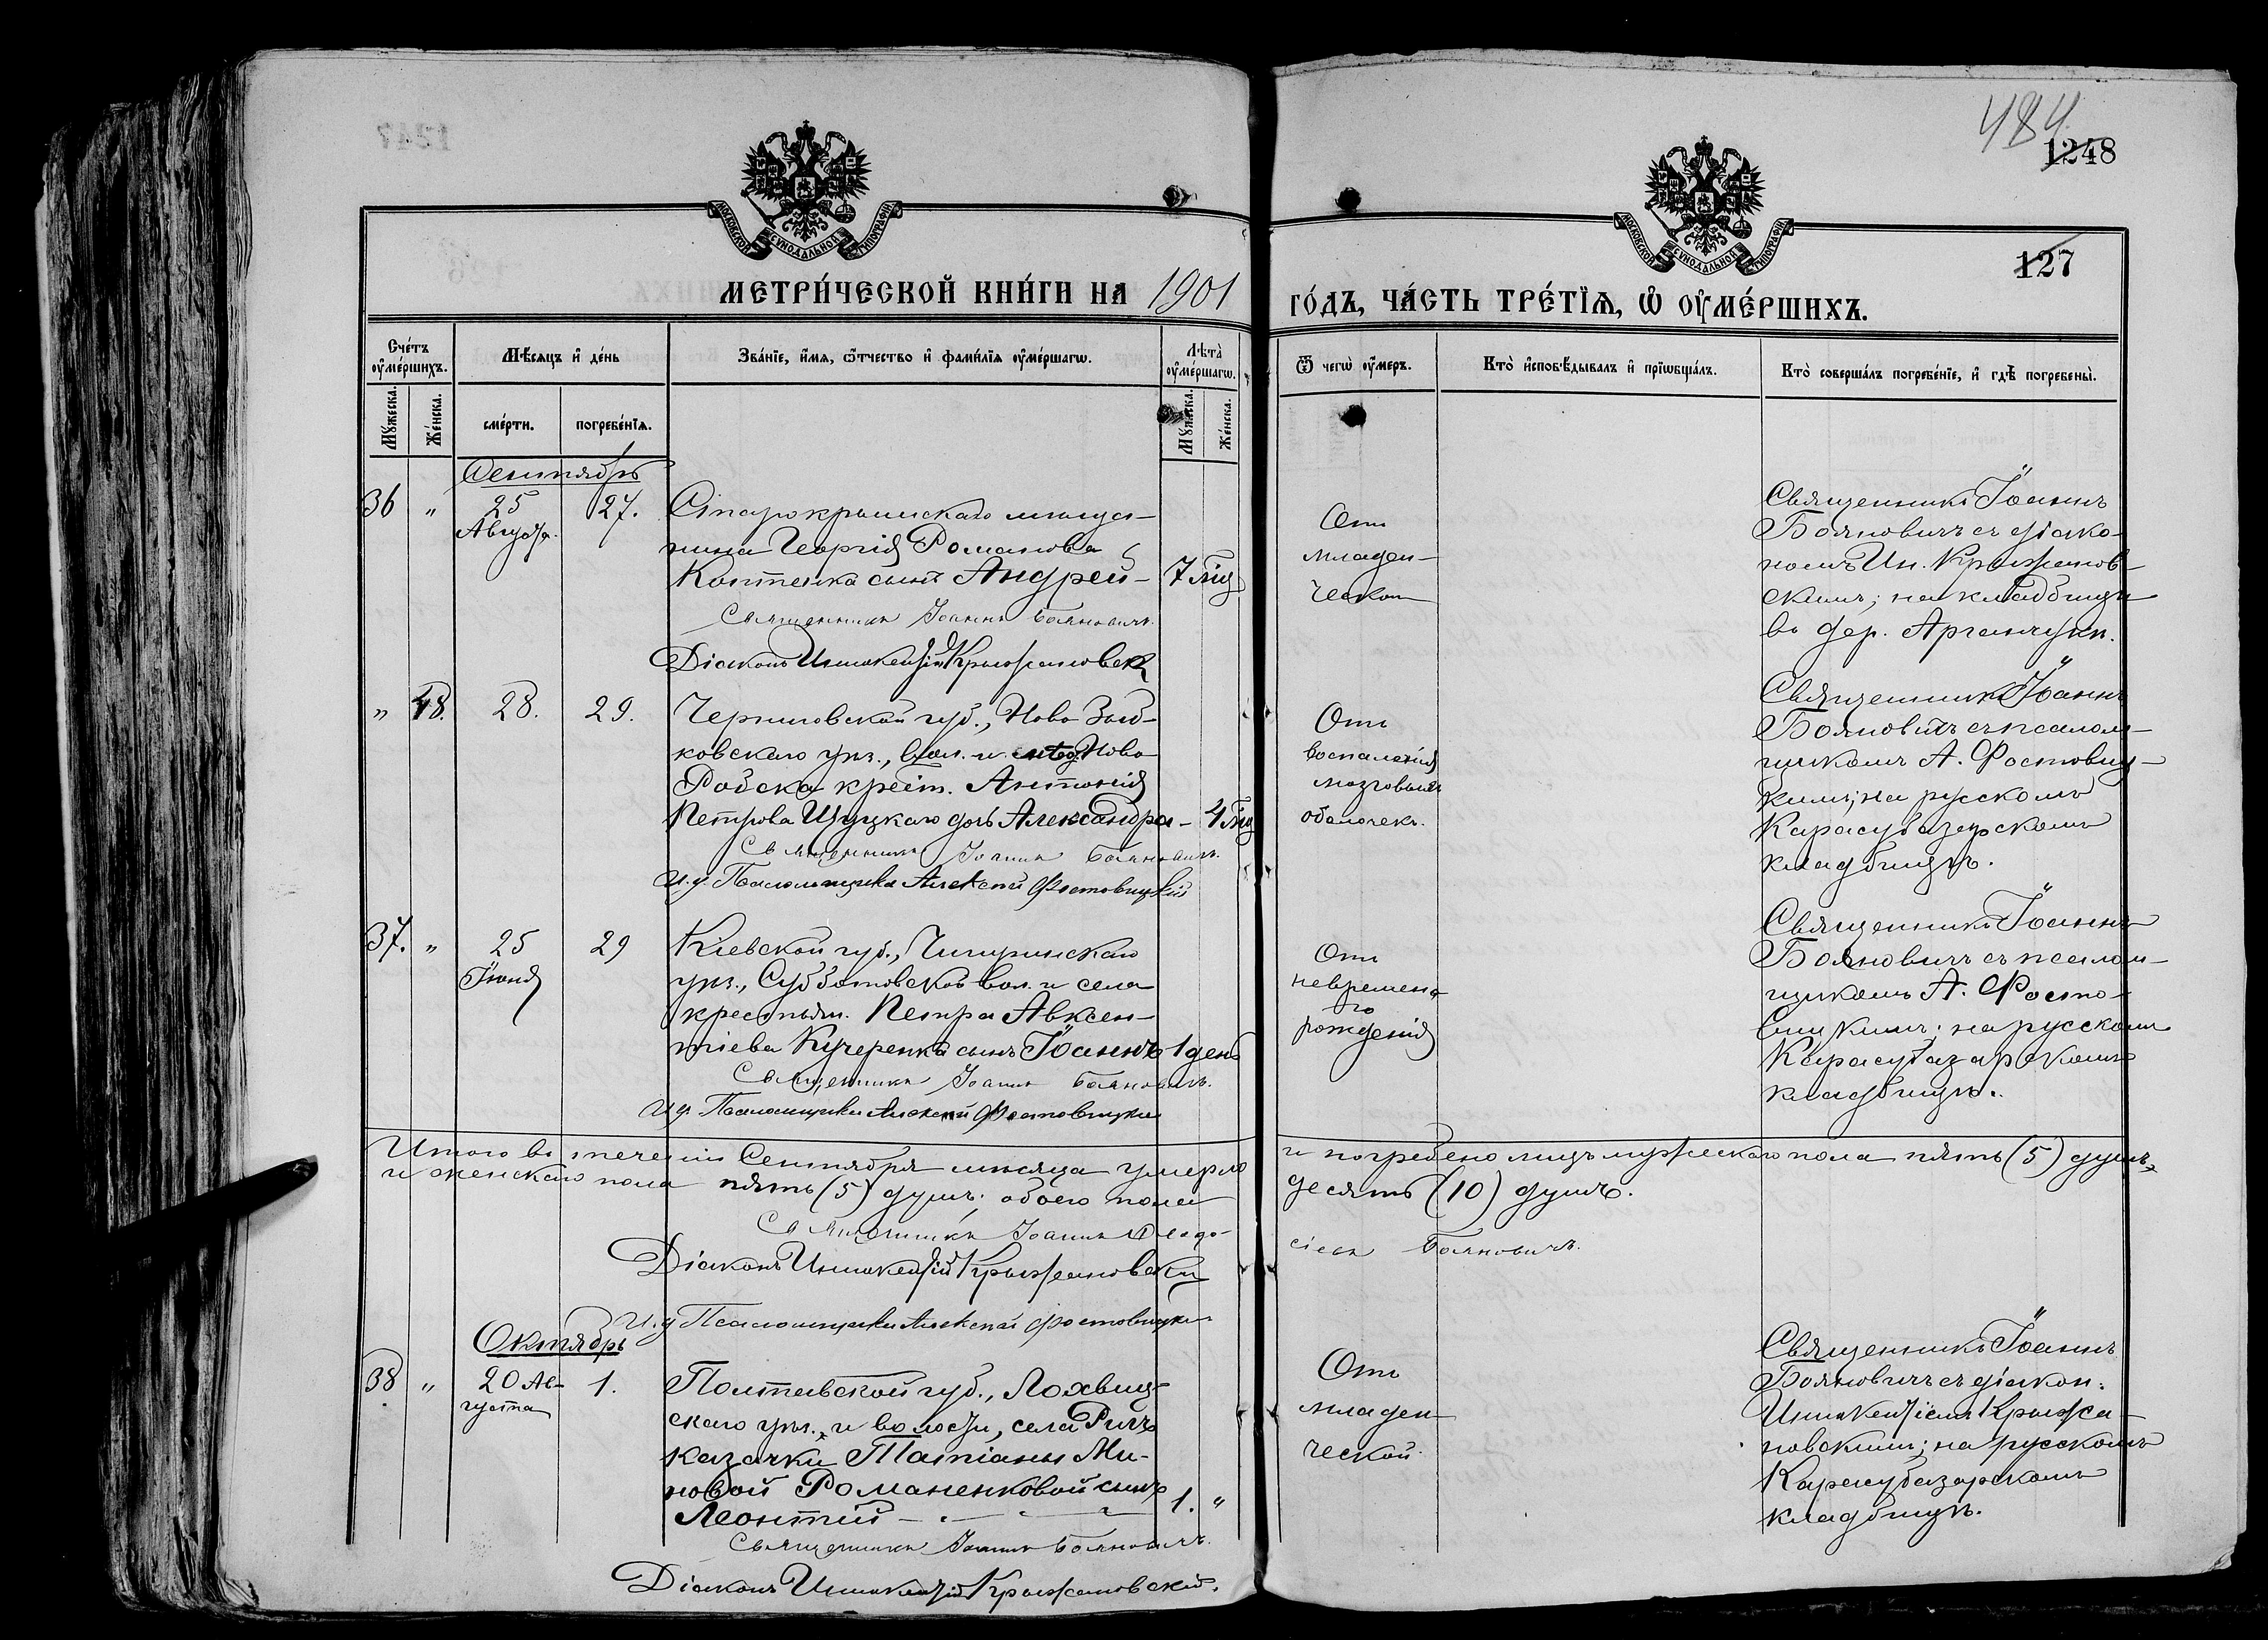 484
1248
127
МОСКОВСКОЙ СУНОДАЛЬНОЙ ТИПОГРАФІИ
МОСКОВСКОЙ СУНОДАЛЬНОЙ ТИПОГРАФІИ
МЕТРИ́ЧЕСКОЙ КНИ́ГИ НА 1901 ГО́ДЪ, ЧА́СТЬ ТРЕ́ТІѦ, Ѡ҆ ОУ҆МЕ́РШИХЪ.
Счетъ оумершихъ.
Мѣсяцъ и день
Званіе, имя, отчество и фамилія оумершагѡ.
Лѣта оумершагѡ.
Ѿ чегѡ оумеръ.
Кто исповѣдывалъ и пріобщалъ.
Кто совершалъ погребеніе, и гдѣ погребены.
Мужеска.
Женска.
смерти.
погребенія.
Мужеска.
Женска.
Сентябрь
36 " 25 27.
Августа.
Старокрымскаго мѣща-
нина Георгія Романова
Коптенка сынъ Андрей - 7 мѣц
Священникъ Іоаннъ Бояновичъ.
Діаконъ Иннокентій Крыжановскій
Отъ
младен-
ческой
Священникъ Іоаннъ
Бояновичъ съ діако-
номъ Ин. Крыжанов-
скимъ; на кладбищѣ
въ дер. Аргинчукъ.
" 18. 28. 29.
Черниговской губ., Ново Зыб-
ковскаго уѣз., вол. и мѣст. Ново
Робска крест. Антонія
Петрова Щуцкаго дочь Александра - 4 мѣц
Священникъ Іоаннъ Бояновичъ.
И. д. Псаломщика Алексѣй Ростовицкій
Отъ
воспаленія
мозговыхъ
оболочекъ.
Священникъ Іоаннъ
Бояновичъ съ псалом-
щикомъ А. Ростовиц-
кимъ; на русскомъ
Карасубазарскомъ
кладбищѣ.
37. " 25 29
Іюня
Кіевской губ., Чигиринскаго
уѣз., Субботовской вол. и села
крестьян. Петра Авксен-
тіева Кучеренка сынъ Іоаннъ 1 день
Священникъ Іоаннъ Бояновичъ.
И. д. Псаломщика Алексѣй Ростовицкій
Отъ
невременна
го
рожденія
Священникъ Іоаннъ
Бояновичъ съ псалом-
щикомъ А. Росто-
вицкимъ; на русскомъ
Карасубазарскомъ
кладбищѣ.
Итого въ теченіи Сентября мѣсяца умерло и погребено лицъ мужескаго пола пять (5) душъ,
и женскаго пола пять (5) душъ; обоего пола десять (10) душъ.
Священникъ Іоаннъ Ѳеодо- сіевъ Бояновичъ.
Діаконъ Иннокентій Крыжановскій
И. д. Псаломщика Алексѣй Ростовицкій
Октябрь
38 " 20 Ав- 1.
густа
Полтавской губ., Лохвиц-
скаго уѣз., и волости, села Ригъ
казачки Татіаны Ми-
новой Романенковой сынъ
Леонтій - 1. "
Священникъ Іоаннъ Бояновичъ.
Діаконъ Иннокентій Крыжановскій.
Отъ
младен-
ческой
Священникъ Іоаннъ
Бояновичъ съ діакон.
Иннокентіемъ Крыжа-
новскимъ; на русскомъ
Карасубазарскомъ
кладбищѣ.